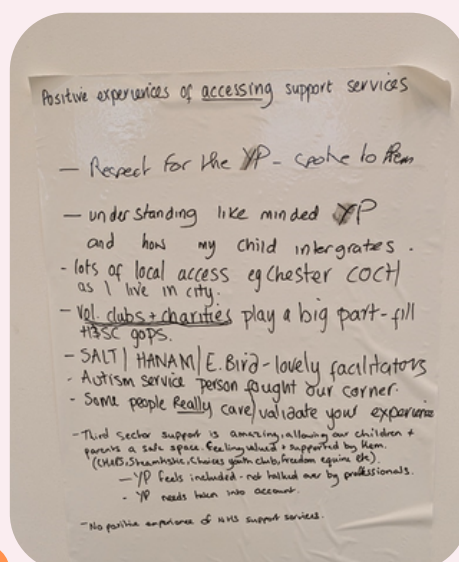 Positive experiences of accessing support services
- Respect for the YP - spoke to them
- understanding like minded YP
and how my child intergrates.
- lots of local access eg Chester COCH
as I live in city.
- Vol. clubs + charities play a big part - fill
H&SC gaps.
- SALT / HANAM / E. Bird - lovely facilitators
- Autism service person fought our corner.
- Some people Really care / validate your experience
- Third sector support is amazing, allowing our children +
parents a safe space, feeling valued + supported by them.
(CHAPS, Choices youth club, freedom equine etc).
- YP feels included - not talked over by professionals.
- YP needs taken into account.
- No positive experience of NHS support services.